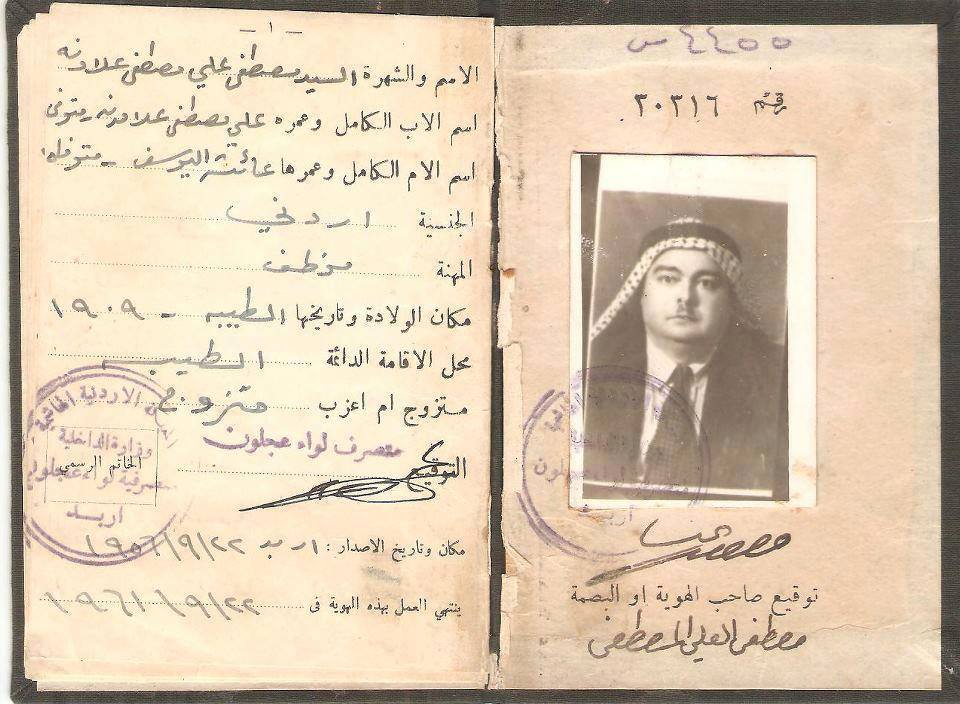 - ١ -
الاسم والشهرة السيد مصطفى علي مصطفى علاونه
اسم الاب الكامل وعمره علي مصطفى علاونه - متوفى
اسم الام الكامل وعمرها عائشة اليوسف - متوفاه
الجنسية اردني
المهنة موظف
مكان الولادة وتاريخها الطيبه - ١٩٠٩
محل الاقامة الدائمة الطيبه
متزوج ام اعزب متزوج
متصرف لواء عجلون
التوقيع
الاردنية الهاشمية
وزارة الداخلية
الخاتم الرسمي
متصرفية لواء عجلون
اربد
مكان وتاريخ الاصدار : اربد ١٩٥٦/٩/٢٢
ينتهي العمل بهذه الهوية في ١٩٦١/٩/٢٢
٤٤٥٥ س
رقم ٢٠٢١٦
اربد
توقيع صاحب الهوية او البصمة
مصطفى العلي المصطفى